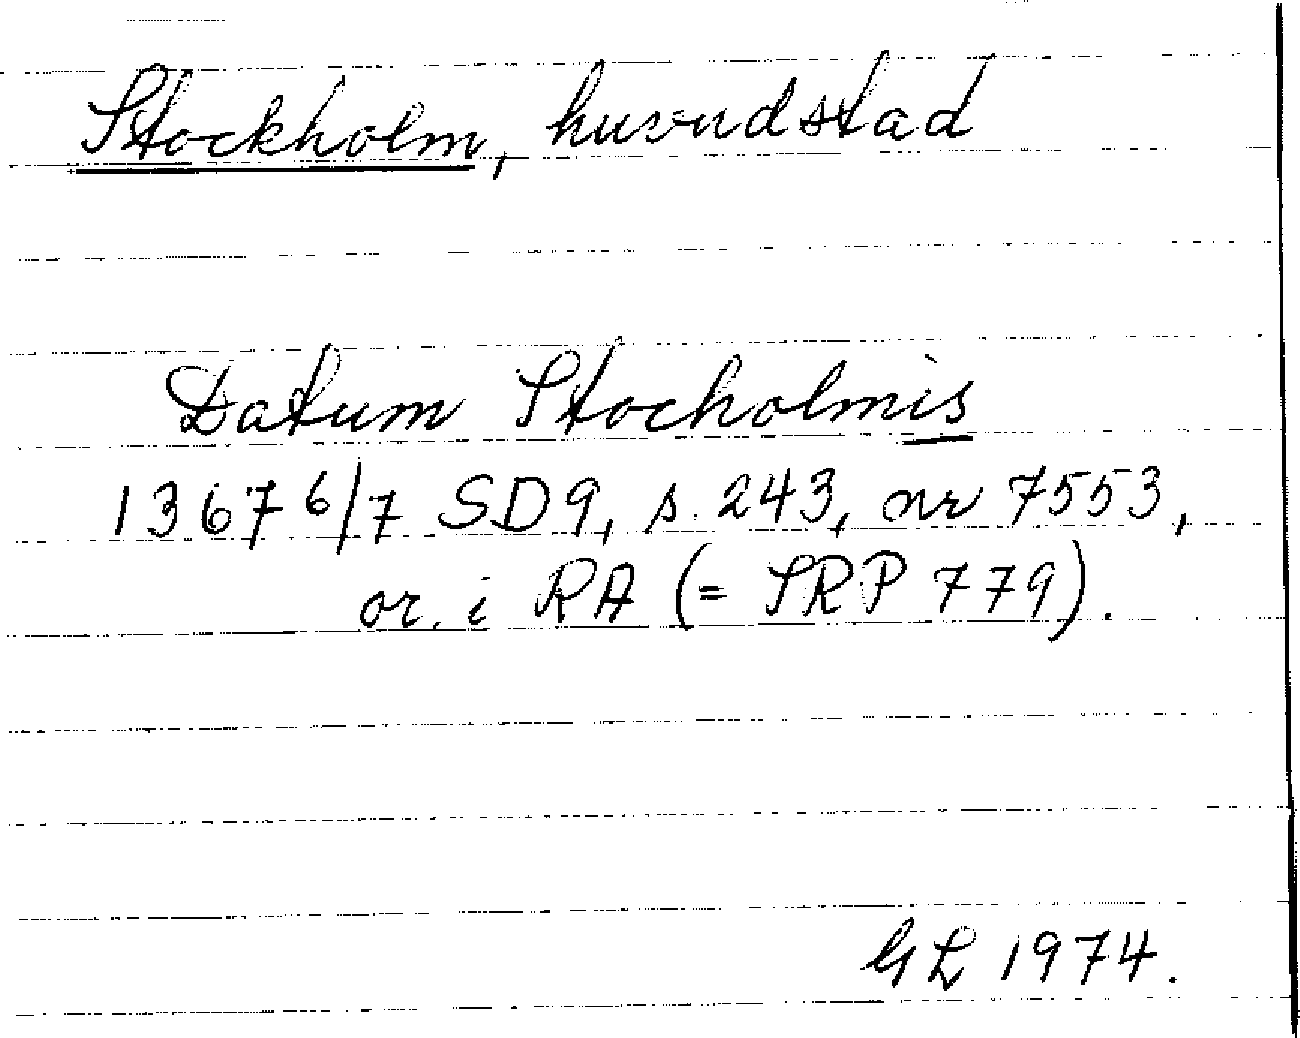 Stockholm, huvudstad
Datum Stocholmis
1367 6/7 SD9, s. 243, nr 7553,
or. i RA (= SRP 779).
GL 1974.